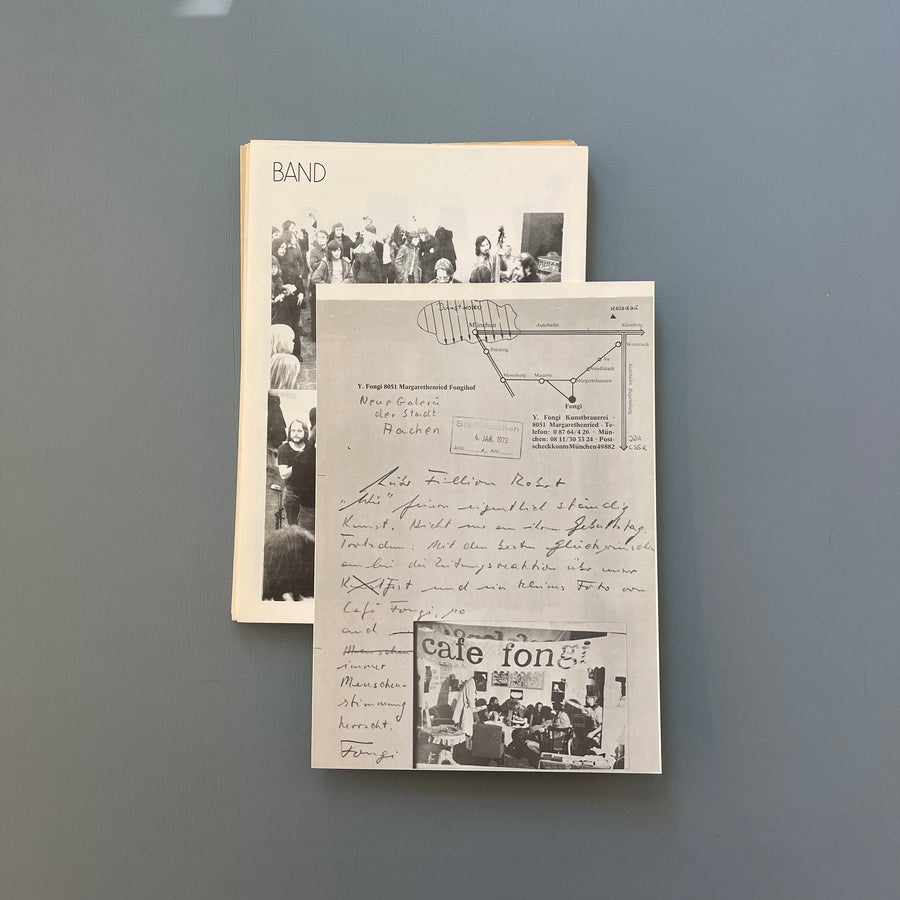 BAND
Kunstwolke
München
Autobahn
Holedau
Nürnberg
Freising
Wolnzach
Au
Nandlstadt
Moosburg
Mauern
Hörgertshausen
Autobahn Regensburg
Fongi
Y. Fongi 8051 Margarethenried Fongihof
Neue Galerie
der Stadt
Aachen
Stadt Aachen
4. JAN. 1973
Y. Fongi Kunstbrauerei ·
8051 Margarethenried · Te-
lefon: 0 87 64/4 26 · Mün-
chen: 08 11/50 33 24 · Post-
scheckkonto München 49882
DDR
CSSR
Lieber Fillion Robert
„Wir" feiern eigentlich ständig
Kunst. Nicht nur an ihrem Geburtstag.
Trotzdem: Mit den besten Glückwünschen
anbei die Zeitungsreaktion über unser
Fest und ein kleines Foto vom
Café Fongi, wo
auch
Menschen
immer
Menschen-
stimmung
herrscht.
Fongi
cafe fongi